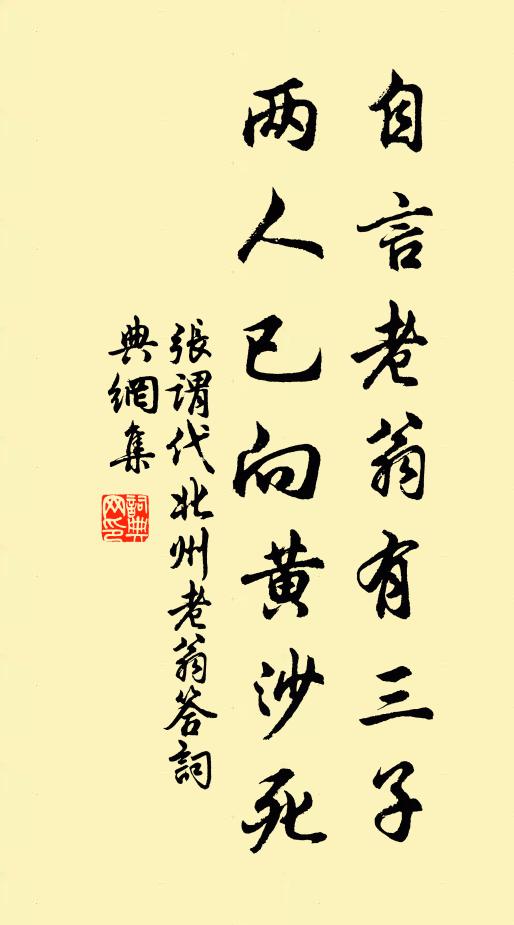 自言老翁有三子
两人已向黄沙死
張謂代北州老翁答詞
典網集
詞典網印